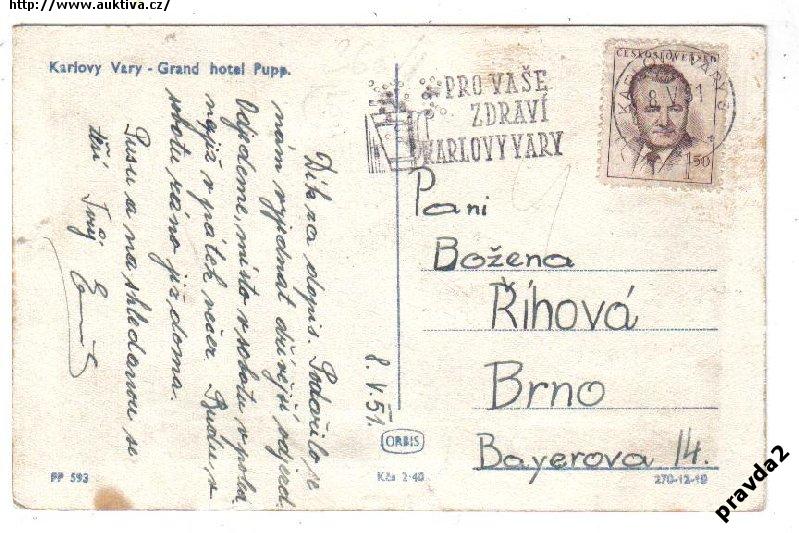 http://www.auktiva.cz/
Karlovy Vary - Grand hotel Pupp.
PRO VAŠE
ZDRAVÍ
KARLOVY VARY
ČESKOSLOVENSKO
KARLOVY VARY 3
8. V. 51
1.50
Dík za dopis. Podařilo se
nám vyjednat dřívější odjezd.
Odjedeme, místo v sobotu v poled.
v pátek večer. Budu v
sobotu ráno již doma.
Pusu a na shledanou se
těší Tvůj
8.V.51.
Paní
Božena
Říhová
Brno
Bayerova 14.
ORBIS
PP 593
Kčs 2·40
270-12-10
pravda2